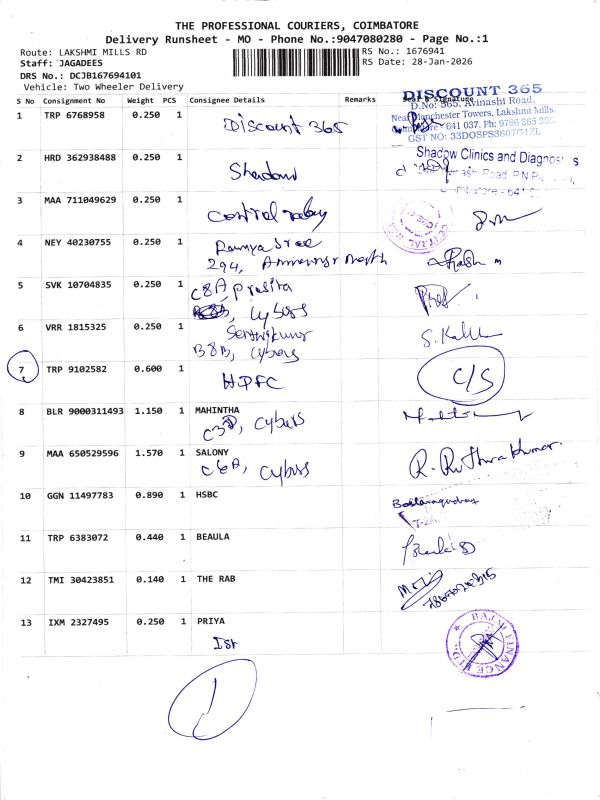 THE PROFESSIONAL COURIERS, COIMBATORE
Delivery Runsheet - MO - Phone No.:9047080280 - Page No.:1
Route: LAKSHMI MILLS RD
RS No.: 1676941
Staff: JAGADEES
RS Date: 28-Jan-2026
DRS No.: DCJB167694101
Vehicle: Two Wheeler Delivery
S No Consignment No Weight PCS Consignee Details Remarks Seal & Signature
DISCOUNT 365
D.No: 365, Avinashi Road,
Near Manchester Towers, Lakshmi Mills,
Coimbatore - 641 037. Ph: 9786 565 365
GST NO: 33DOSPS3807G1ZL
1 TRP 6768958 0.250 1 Discount 365
2 HRD 362938488 0.250 1 Shadow
Shadow Clinics and Diagnosis
Road, P.N.P
641
3 MAA 711049629 0.250 1 Control relay
CENTRAL
4 NEY 40230755 0.250 1 Ramya Sree
294, North
5 SVK 10704835 0.250 1 C8A, Prasita
Cybers
6 VRR 1815325 0.250 1 Senthilkumar
B8B, Cybers
S. Kal
7 TRP 9102582 0.600 1 HDFC C/S
8 BLR 9000311493 1.150 1 MAHINTHA
C3D, Cybers
9 MAA 650529596 1.570 1 SALONY
C6A, Cybers
R. Ruthra Kumar.
10 GGN 11497783 0.890 1 HSBC
11 TRP 6383072 0.440 1 BEAULA
12 TMI 30423851 0.140 1 THE RAB
13 IXM 2327495 0.250 1 PRIYA
BAJAJ FINANCE LTD.
1